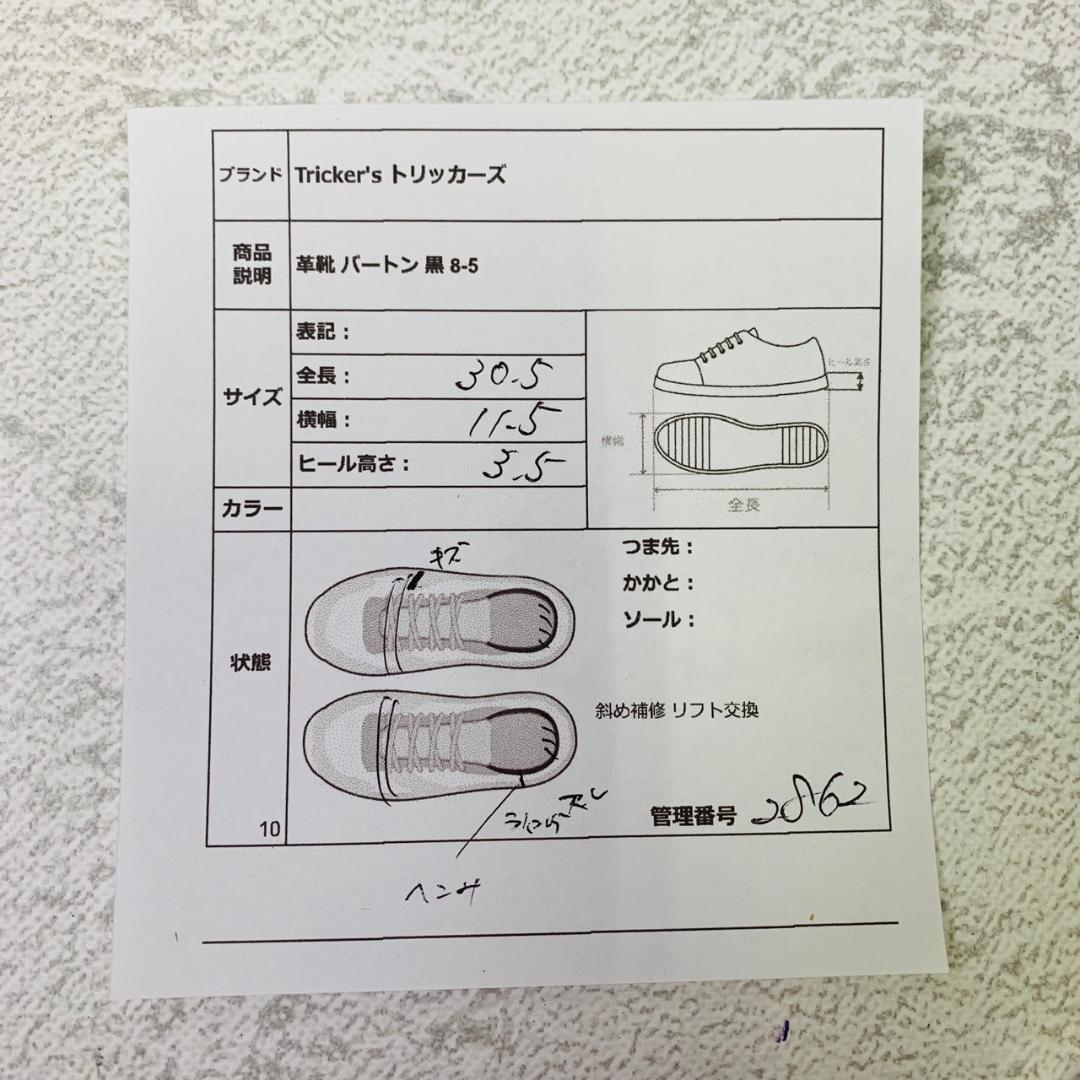 ブランド Tricker's トリッカーズ
商品
説明
革靴 バートン 黒 8-5
サイズ
表記：
全長： 30.5
横幅： 11.5
ヒール高さ： 3.5
ヒール高さ
横幅
全長
カラー
状態
10
キズ
つま先：
かかと：
ソール：
斜め補修 リフト交換
管理番号 2862